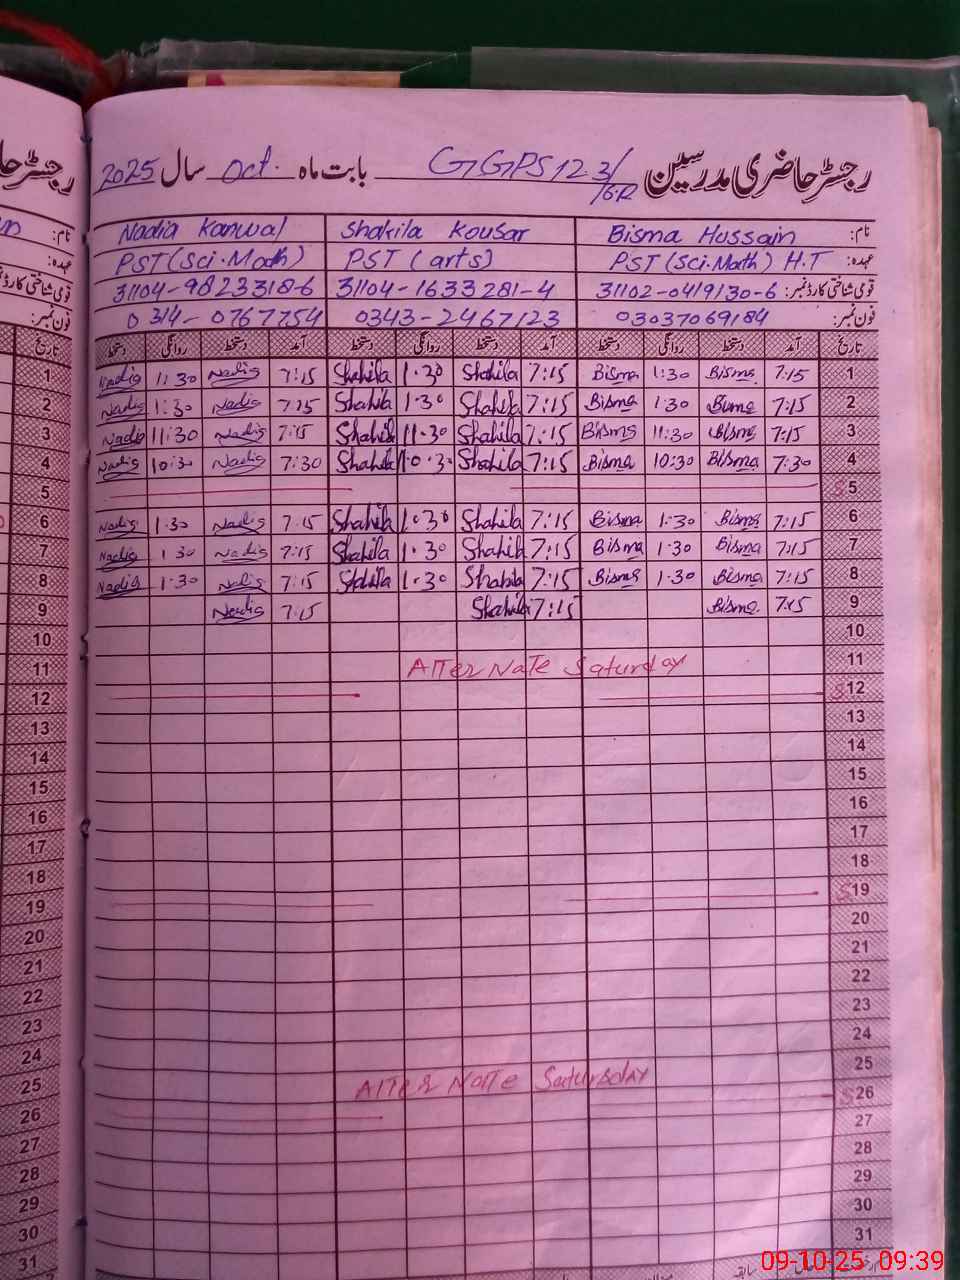 رجسٹر حاضری مدرسین GGPS 123/6R بابت ماہ Oct. سال 2025
نام: Bisma Hussain Shakila Kousar Nadia Kanwal
عہدہ: PST (Sci. Math) H.T PST (arts) PST (Sci. Math)
قومی شناختی کارڈ نمبر: 31102-0419130-6 31104-1633281-4 31104-9823318-6
فون نمبر: 03037069184 0343-2467123 0314-0767754
تاریخ آمد دستخط روانگی دستخط آمد دستخط روانگی دستخط آمد دستخط روانگی دستخط
1 7:15 Bisma 1:30 Bisma 7:15 Shakila 1.30 Shakila 7:15 Nadia 1:30 Nadia
2 7:15 Bisma 1:30 Bisma 7:15 Shakila 1.30 Shakila 7:15 Nadia 1:30 Nadia
3 7:15 Bisma 11:30 Bisma 7:15 Shakila 11.30 Shakila 7:15 Nadia 11:30 Nadia
4 7:30 Bisma 10:30 Bisma 7:15 Shakila 10.30 Shakila 7:30 Nadia 10:30 Nadia
S 5
6 7:15 Bisma 1:30 Bisma 7:15 Shakila 1.30 Shakila 7:15 Nadia 1.30 Nadia
7 7:15 Bisma 1:30 Bisma 7:15 Shakila 1.30 Shakila 7:15 Nadia 1.30 Nadia
8 7:15 Bisma 1:30 Bisma 7:15 Shakila 1.30 Shakila 7:15 Nadia 1.30 Nadia
9 7:15 Bisma. 7:15 Shakila 7:15 Nadia
10
11 AlterNate Saturday
S 12
13
14
15
16
17
18
S 19
20
21
22
23
24
25 AlterNate Saturday
S 26
27
28
29
30
31
رجسٹر حا
تاریخ
1
2
3
4
5
6
7
8
9
10
11
12
13
14
15
16
17
18
19
20
21
22
23
24
25
26
27
28
29
30
31
09-10-25 09:39